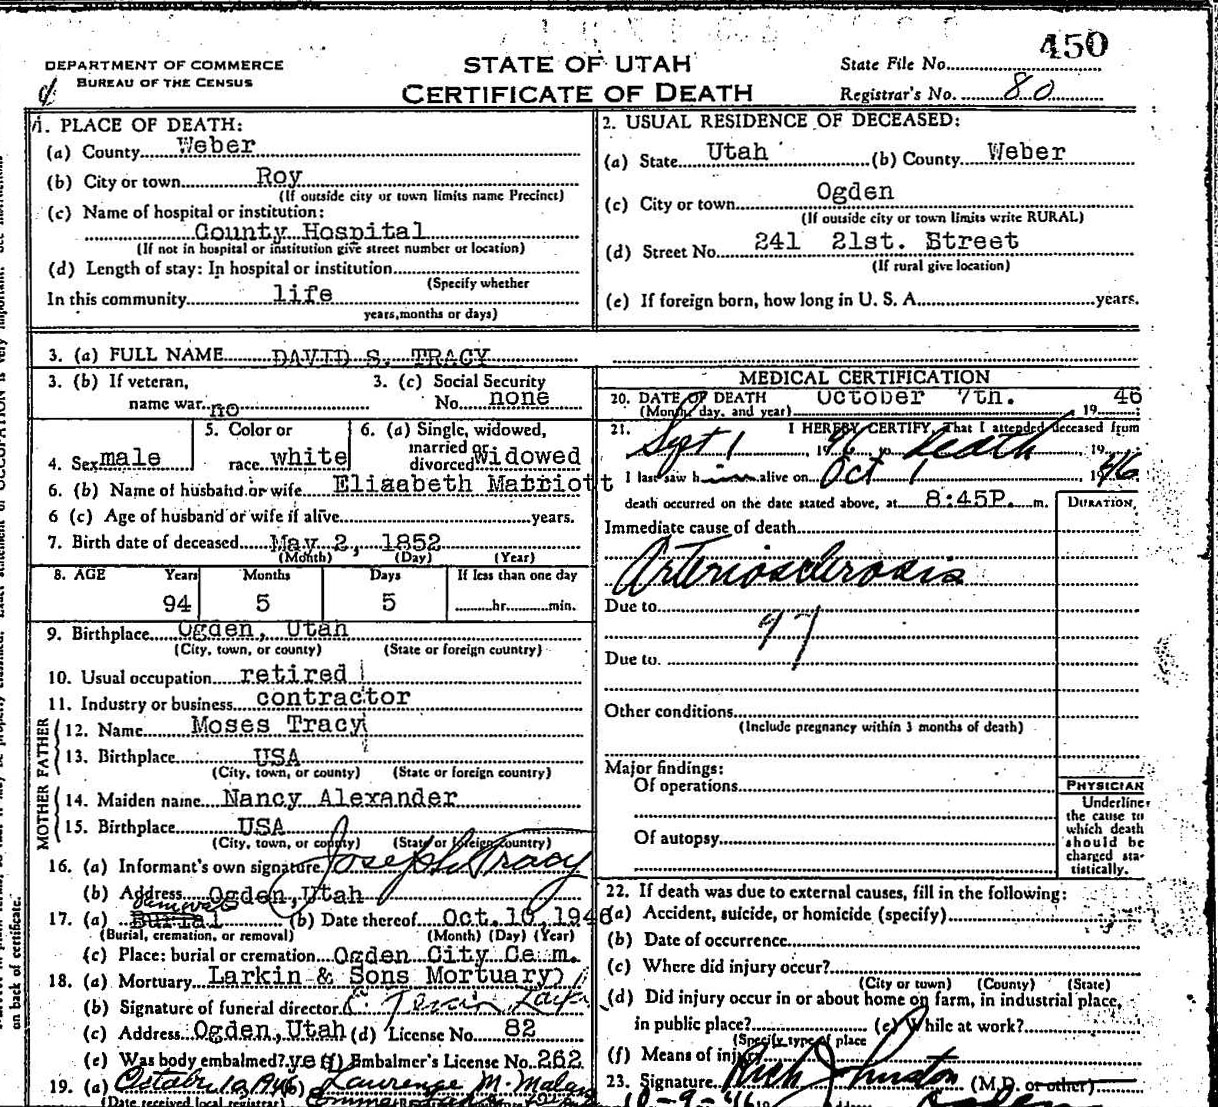 450
DEPARTMENT OF COMMERCE
BUREAU OF THE CENSUS
STATE OF UTAH
CERTIFICATE OF DEATH
State File No.
Registrar's No. 80
1. PLACE OF DEATH:
(a) County Weber
(b) City or town Roy
(If outside city or town limits name Precinct)
(c) Name of hospital or institution:
County Hospital
(If not in hospital or institution give street number or location)
(d) Length of stay: In hospital or institution
(Specify whether
In this community life
years, months or days)
2. USUAL RESIDENCE OF DECEASED:
(a) State Utah (b) County Weber
(c) City or town Ogden
(If outside city or town limits write RURAL)
(d) Street No. 241 21st. Street
(If rural give location)
(e) If foreign born, how long in U. S. A. years.
3. (a) FULL NAME DAVID S. TRACY
3. (b) If veteran, name war no
3. (c) Social Security No. none
4. Sex male
5. Color or race white
6. (a) Single, widowed, married or divorced Widowed
6. (b) Name of husband or wife Eliaabeth Matriott
6 (c) Age of husband or wife if alive years.
7. Birth date of deceased May 2, 1852
(Month) (Day) (Year)
8. AGE Years Months Days If less than one day
94 5 5 hr. min.
9. Birthplace Ogden, Utah
(City, town, or county) (State or foreign country)
10. Usual occupation retired
11. Industry or business contractor
FATHER
12. Name Moses Tracy
13. Birthplace USA
(City, town, or county) (State or foreign country)
MOTHER
14. Maiden name Nancy Alexander
15. Birthplace USA
(City, town, or county) (State or foreign country)
16. (a) Informant's own signature Joseph Tracy
(b) Address Ogden, Utah
17. (a) Removal Burial (b) Date thereof Oct. 10, 1946
(Burial, cremation, or removal) (Month) (Day) (Year)
(c) Place: burial or cremation Ogden City Cem.
18. (a) Mortuary Larkin & Sons Mortuary
(b) Signature of funeral director
(c) Address Ogden, Utah (d) License No. 82
(e) Was body embalmed? yes (f) Embalmer's License No. 262
19. (a) October 10, 1946 (b) Lawrence M. Malan
(Date received local registrar)
MEDICAL CERTIFICATION
20. DATE OF DEATH October 7th. 1946
(Month, day, and year)
21. I HEREBY CERTIFY, That I attended deceased from
Sept 1, 1946 to Death, 19
I last saw him alive on Oct 1, 1946
death occurred on the date stated above, at 8:45P. m.
DURATION
Immediate cause of death
Arteriosclerosis
Due to
97
Due to
Other conditions
(Include pregnancy within 3 months of death)
Major findings:
Of operations
Of autopsy
PHYSICIAN
Underline
the cause to
which death
should be
charged sta-
tistically.
22. If death was due to external causes, fill in the following:
(a) Accident, suicide, or homicide (specify)
(b) Date of occurrence
(c) Where did injury occur?
(City or town) (County) (State)
(d) Did injury occur in or about home on farm, in industrial place,
in public place? (e) While at work?
(Specify type of place
(f) Means of injury
23. Signature (M.D. or other)
10-9-46
on back of certificate.